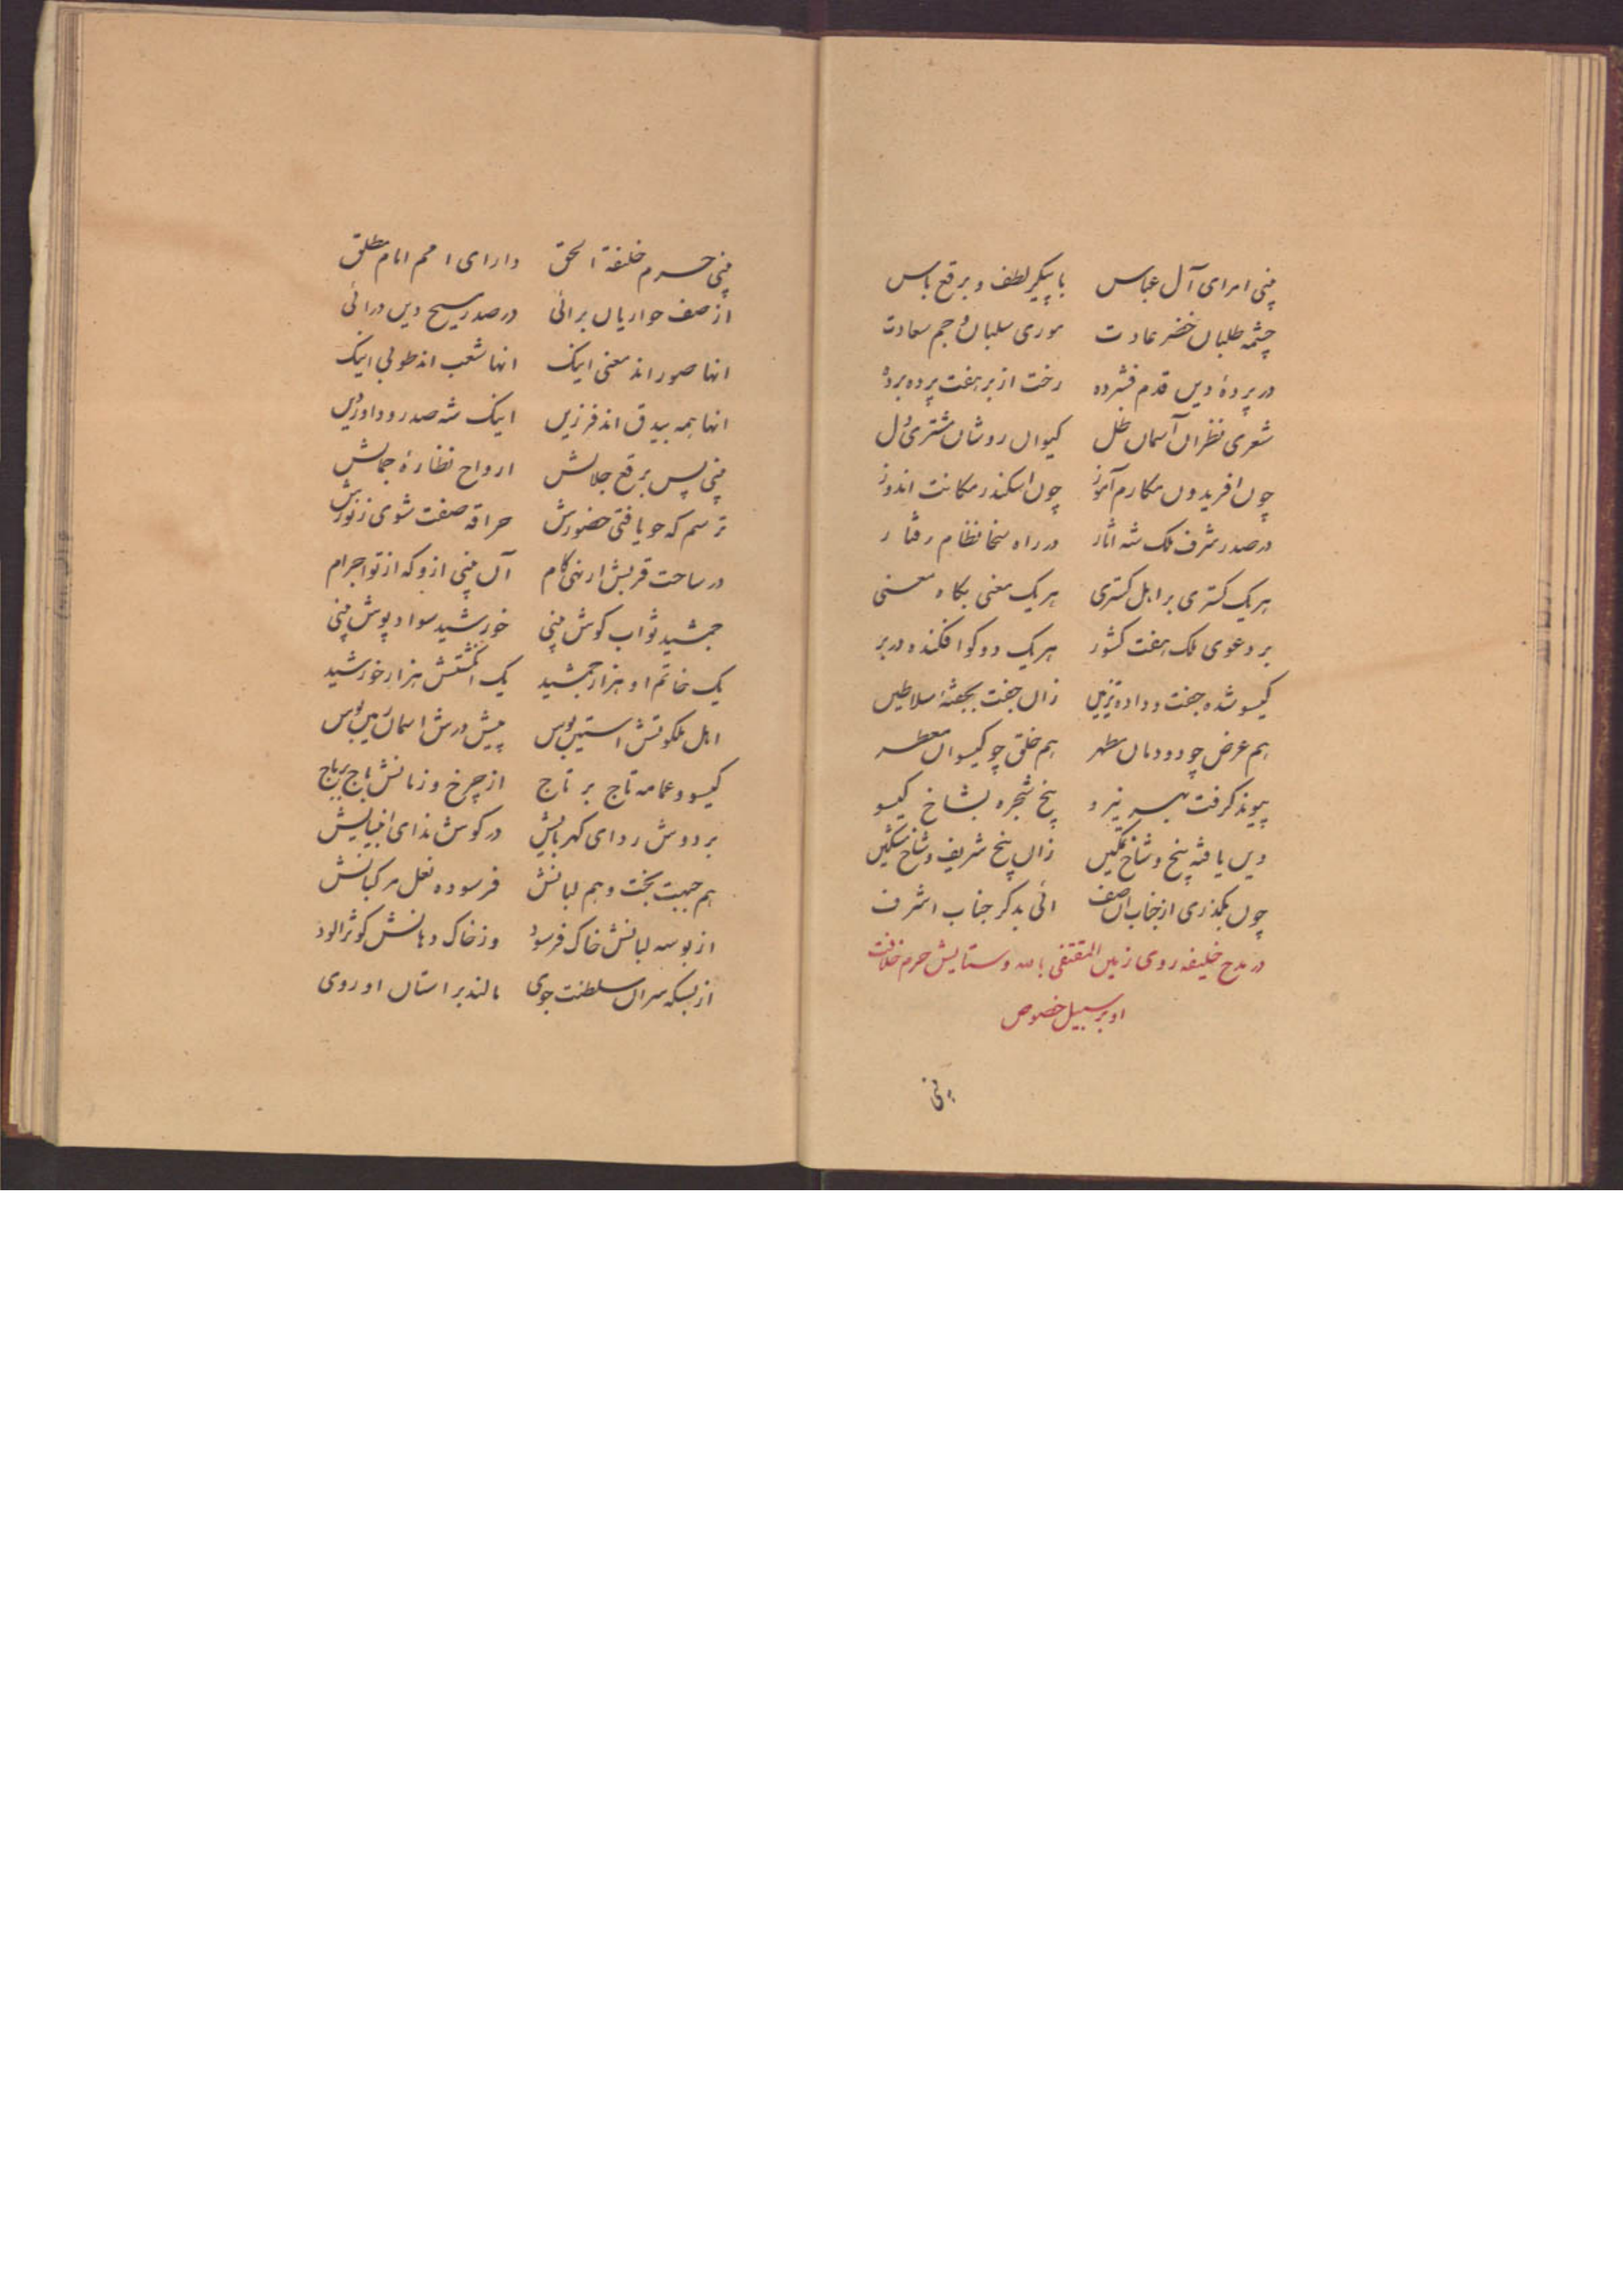 بینی امرای آل عباس با پیکر لطف و برقع باس
چشمه طلبان خضر عادت موری سلبان و جم سعادت
در پردهٔ دین قدم فشرده رخت از بر هفت پرده برده
شعری نظران آسمان ظل کیوان روشان مشتری دل
چون افریدون مکارم آموز چون اسکندر مکانت اندوز
در صدر شرف ملک شه اثار در راه سخا نظام رفتار
هر یک کستری بر اهل کستری هر یک معنی بکاه معنی
بر دعوی ملک هفت کشور هر یک دو کوا فکنده در بر
کیسو شده جفت و داده تزیین زان جفت بجفته سلاطین
هم عرض چو دودمان مطهر هم خلق چو کیسوان معطر
پیوند کرفت بهر نیرو پنج شجره بشاخ کیسو
دین یافته پنج و شاخ تمکین زان پنج شریف و شاخ مشکین
چون بگذری از جناب ان صف ائی بدکر جناب اشرف
در مدح خلیفه روی زمین المقتفی بالله و ستایش حرم خلافت
او بر سبیل خصوص
بینی
بینی حرم خلیفة الحق دارای امم امام مطلق
از صف حواریان برائی در صدر مسیح دین درائی
انها صور اند معنی اینک انها شعب اند طوبی اینک
انها همه بیدق اند فرزین اینک شه صدر و داور دین
بینی پس برقع جلالش ارواح نظارهٔ جمالش
ترسم که چو یافتی حضورش حراقه صفت شوی ز نورش
در ساحت قربش ار نهی کام آن بینی ازو که از تو اجرام
جمشید ثواب کوش بینی خورشید سواد پوش بینی
یک خاتم او هزار جمشید یک انگشتش هزار خورشید
اهل ملکوتش استین بوس پیش درش اسمان زمین بوس
کیسو و عمامه تاج بر تاج از چرخ و زمانش باج بر باج
بر دوش ردای کبریایش در کوش ندای انبیایش
هم جبهت بخت و هم لبانش فرسوده نعل مرکبانش
از بوسه لبانش خاک فرسود وز خاک دهانش کوثر الود
از بسکه سران سلطنت جوی مالند بر استان او روی